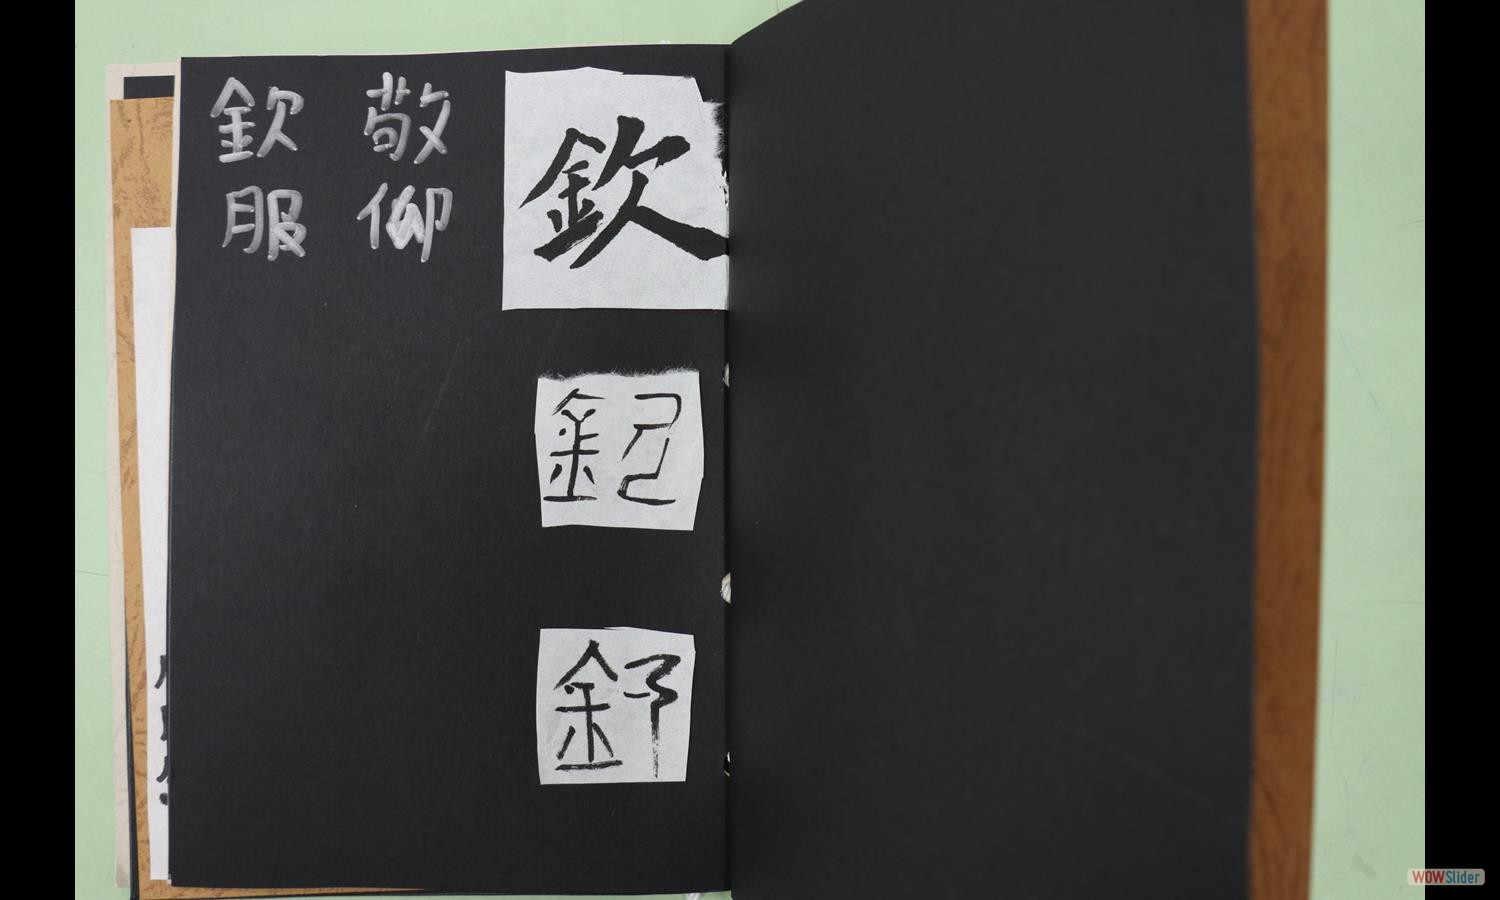 欽
敬仰
欽服
WOWSlider